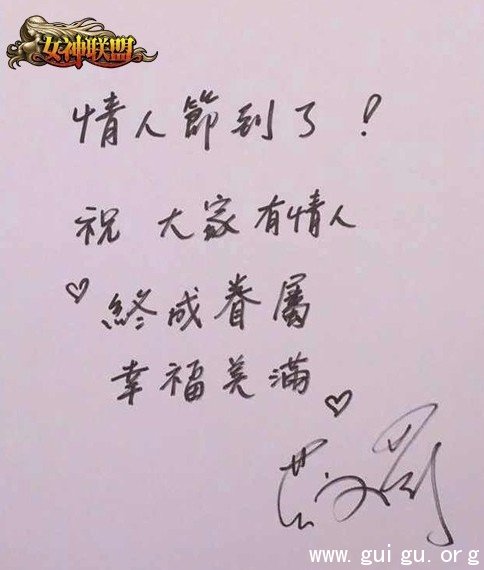 女神联盟
情人節到了！
祝 大家有情人
終成眷屬
幸福美滿
www.guigu.org